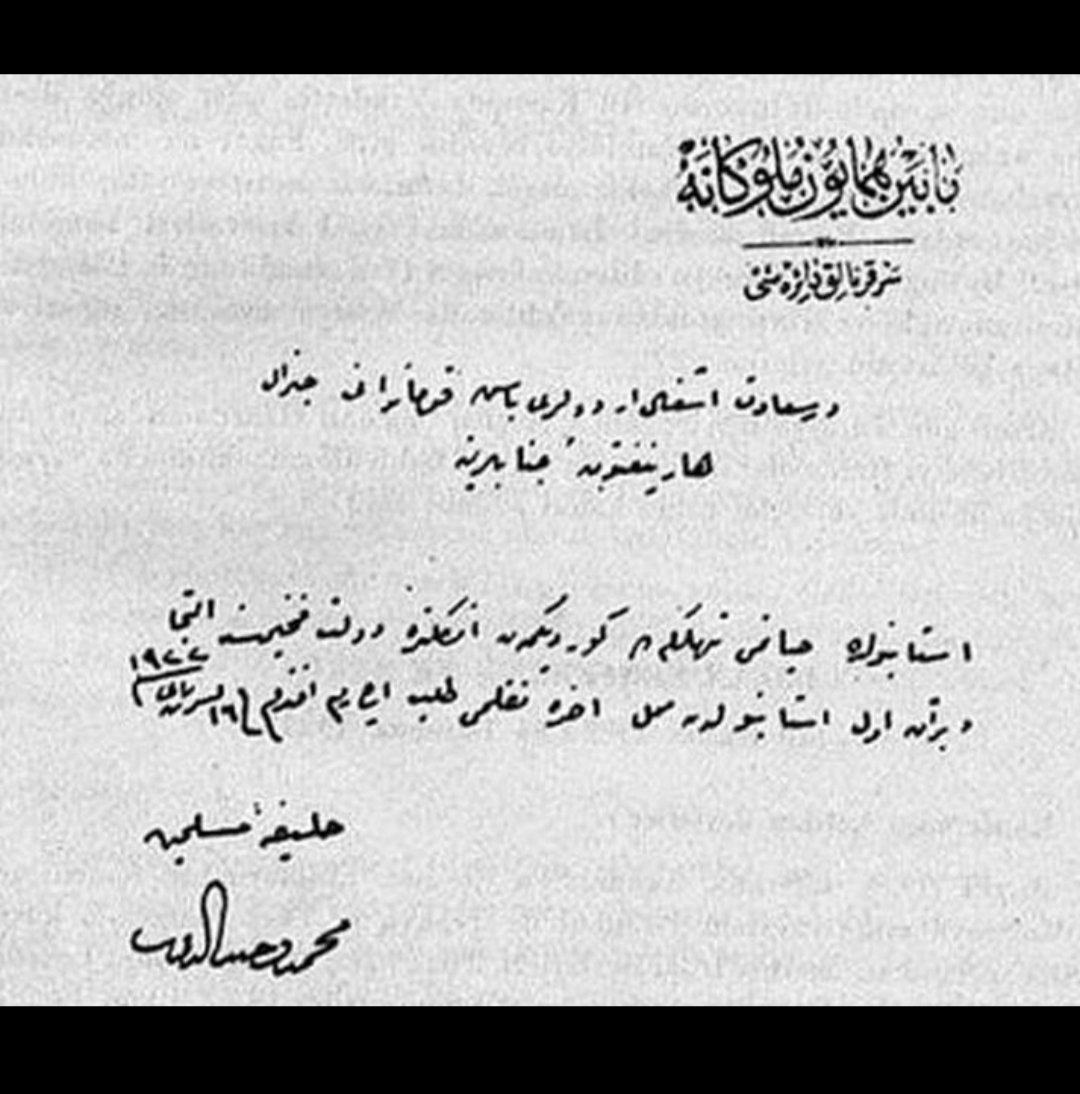 مابين همايون ملوكانه
سرقرنالق دائره سى
درسعادت اشغال اردولرى باش قوماندانى جنرال
هارينغتون جنابلرينه
استانبولده حياتمى تهلكه ده كورديكمدن انكلتره دولت فخيمه سنه التجا
و بر آن اول استانبولدن محل اخره نقلمى طلب ايدرم افندم ١٦ تشرين ثانى ١٩٢٢
خليفهٔ مسلمين
محمد وحيدالدين